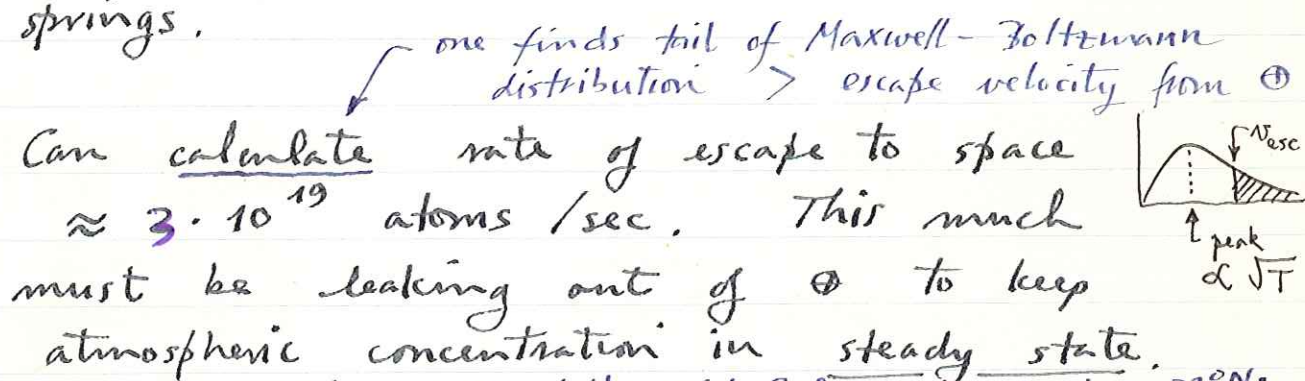 springs.
one finds tail of Maxwell-Boltzmann
distribution > escape velocity from ⊕
Can calculate rate of escape to space
≈ 3·10¹⁹ atoms/sec. This much
must be leaking out of ⊕ to keep
atmospheric concentration in steady state.
v_esc
peak
∝ √T